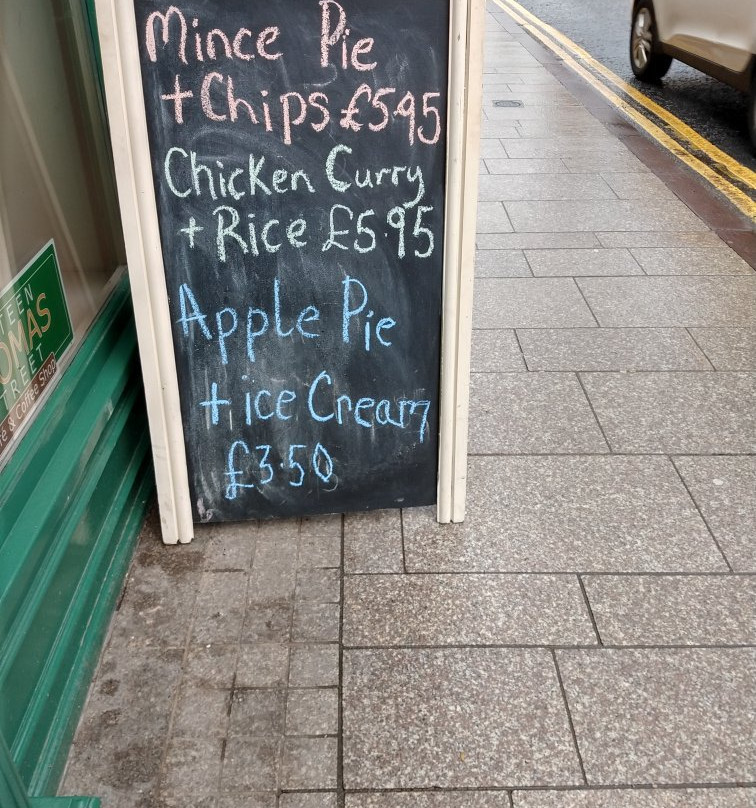 Mince Pie
+ Chips £5.95
Chicken Curry
+ Rice £5.95
Apple Pie
+ ice Cream
£3.50
TEEN
OMAS
TREET
& Coffee Shop